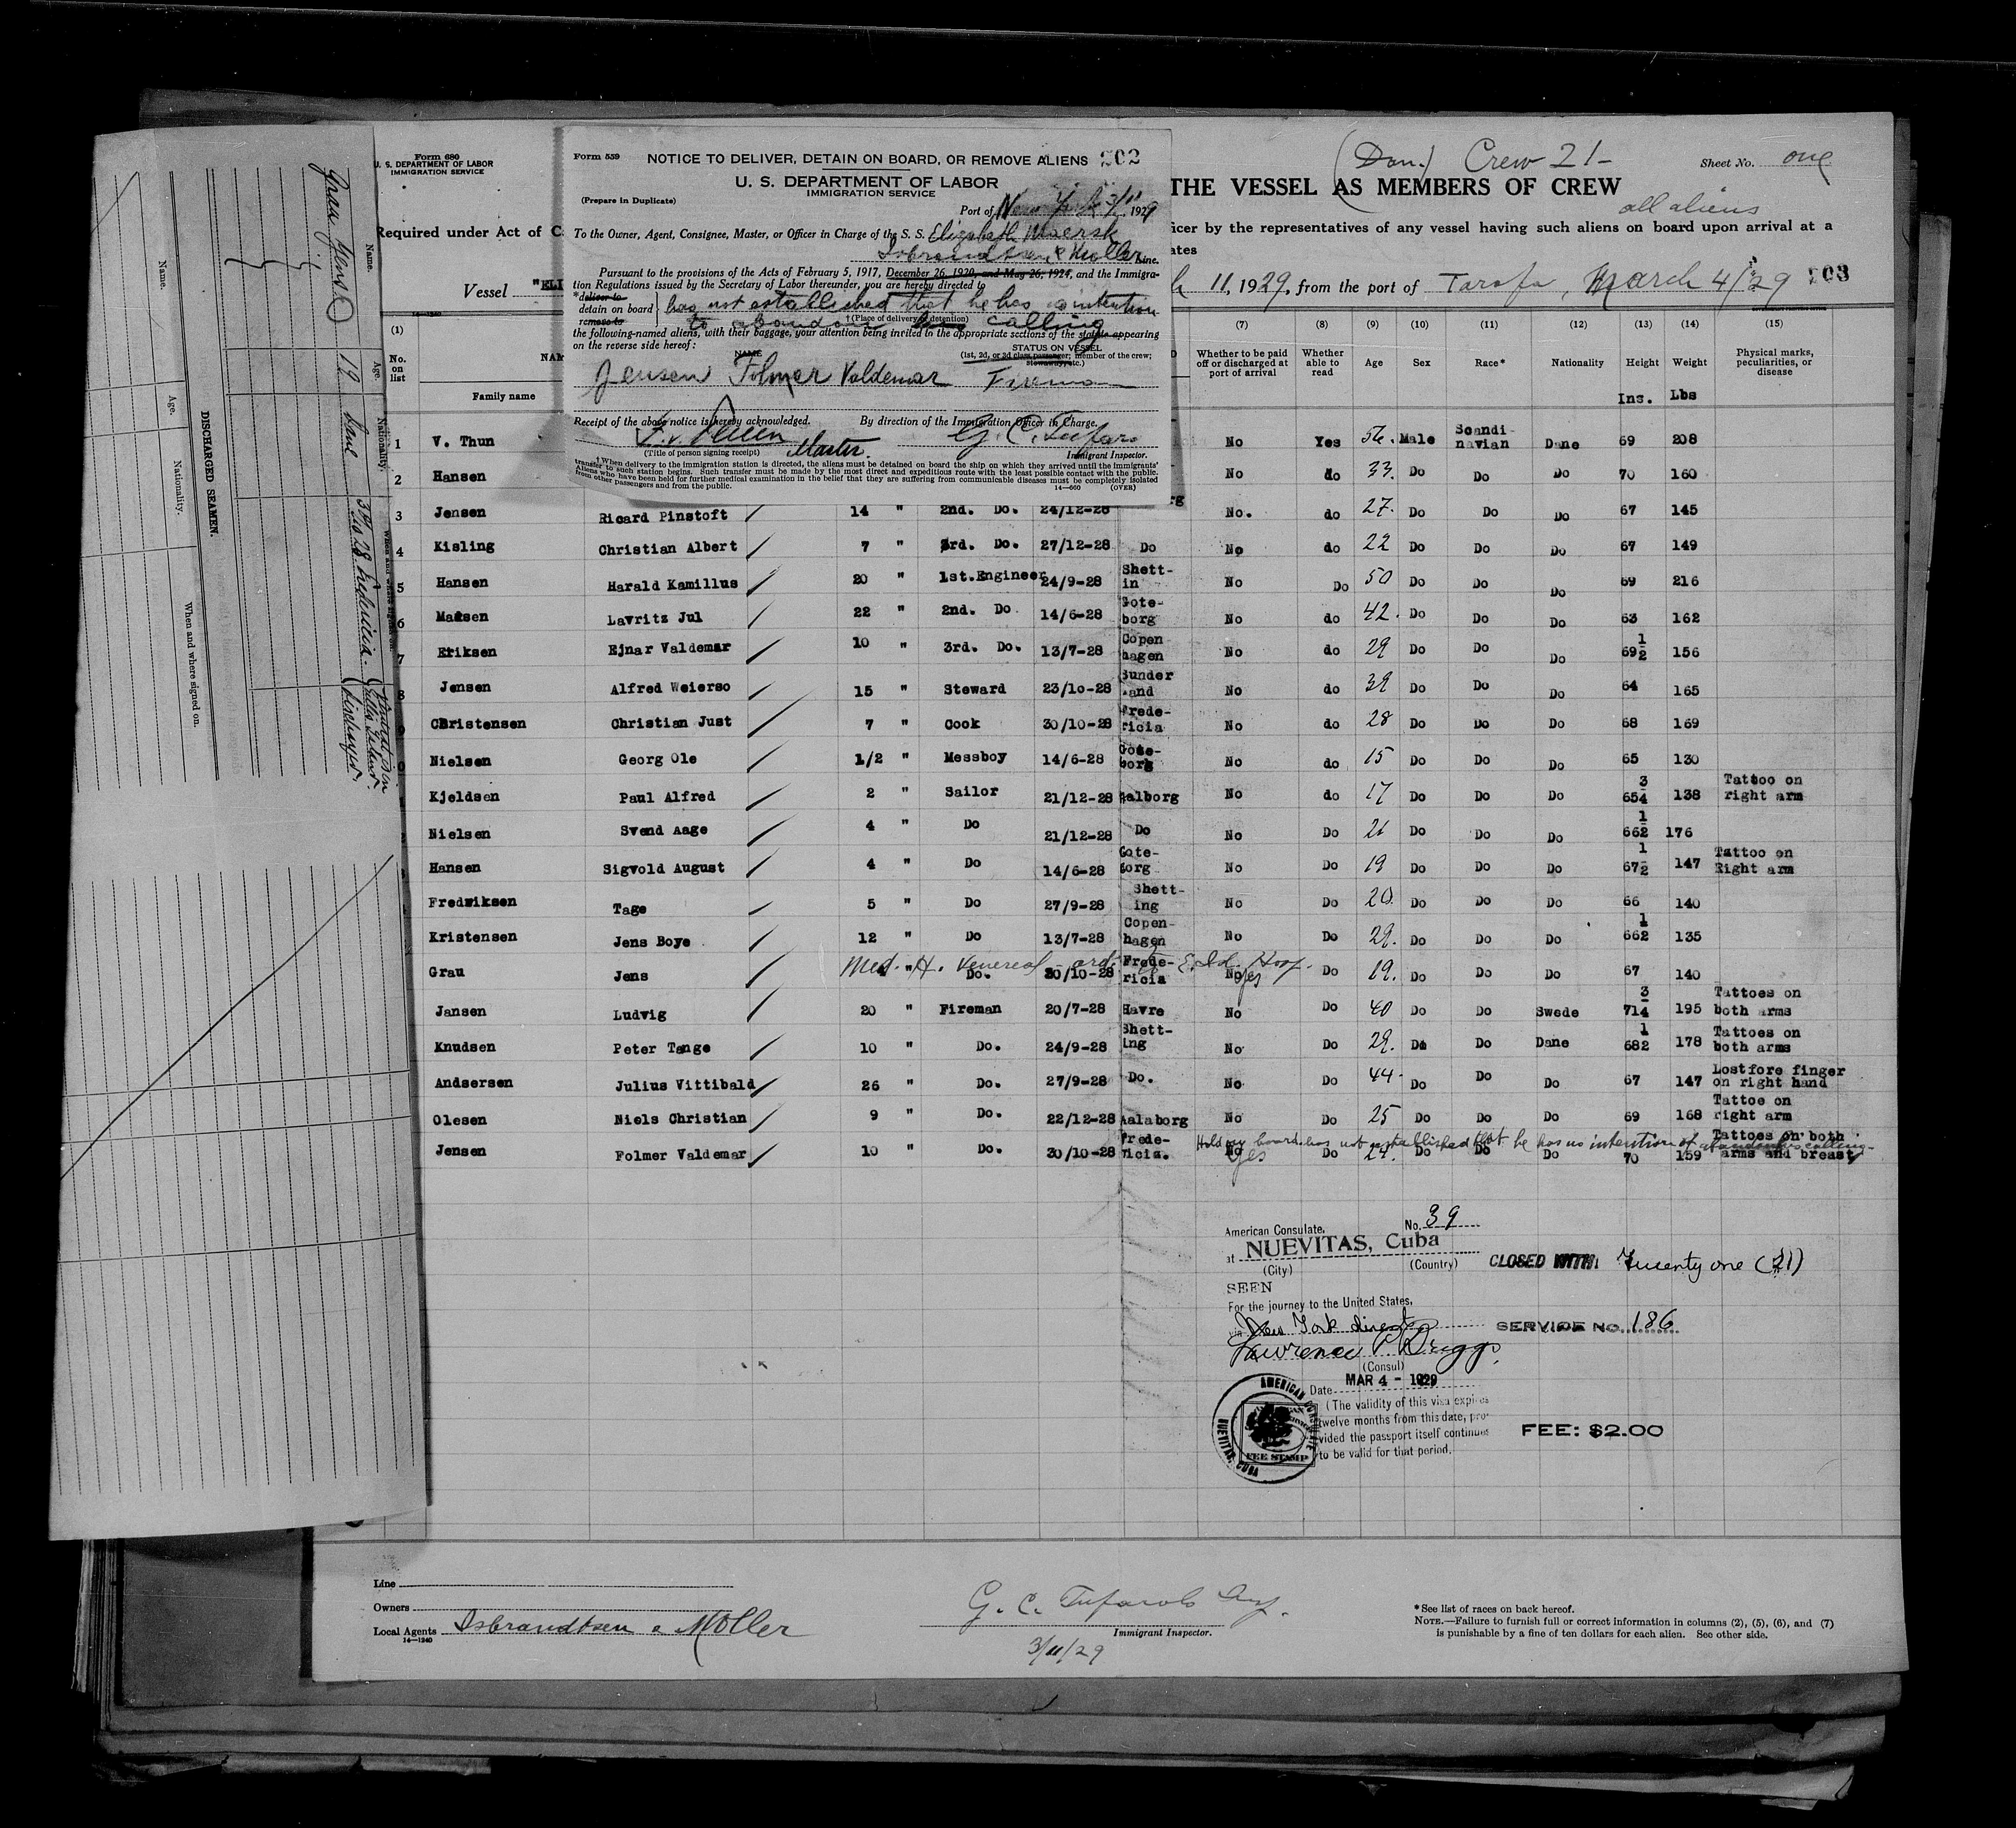 Form 680
U. S. DEPARTMENT OF LABOR
IMMIGRATION SERVICE
Required under Act of C
Vessel "ELI
Form 559 NOTICE TO DELIVER, DETAIN ON BOARD, OR REMOVE ALIENS 202
U. S. DEPARTMENT OF LABOR
IMMIGRATION SERVICE
(Prepare in Duplicate)
Port of New York 3/11, 1929
To the Owner, Agent, Consignee, Master, or Officer in Charge of the S. S. Elizabeth Maersk
Isbrandtsen & Moller Line.
Pursuant to the provisions of the Acts of February 5, 1917, December 26, 1920, and May 26, 1924, and the Immigra-
tion Regulations issued by the Secretary of Labor thereunder, you are hereby directed to
*deliver to
detain on board has not established that he has no intention
remove to to abandon calling
†(Place of delivery or detention)
the following-named aliens, with their baggage, your attention being invited to the appropriate sections of the statute appearing
on the reverse side hereof:
NAME STATUS ON VESSEL
(1st, 2d, or 3d class passenger; member of the crew;
stowaway, etc.)
Jensen Folmer Valdemar Fireman
Receipt of the above notice is hereby acknowledged. By direction of the Immigration Officer in Charge.
Master.
(Title of person signing receipt) Immigrant Inspector.
†When delivery to the immigration station is directed, the aliens must be detained on board the ship on which they arrived until the immigrants'
transfer to such station begins. Such transfer must be made by the most direct and expeditious route with the least possible contact with the public.
Aliens who have been held for further medical examination in the belief that they are suffering from communicable diseases must be completely isolated
from other passengers and from the public. 14—660 (OVER)
(Dan.) Crew 21- Sheet No. one
THE VESSEL AS MEMBERS OF CREW
all aliens
icer by the representatives of any vessel having such aliens on board upon arrival at a
ates
11, 1929, from the port of Tarafa, March 4/29 203
(1) (7) (8) (9) (10) (11) (12) (13) (14) (15)
No. on list NAM Family name Whether to be paid off or discharged at port of arrival Whether able to read Age Sex Race* Nationality Height Weight Physical marks, peculiarities, or disease
Ins. Lbs
1 V. Thun No Yes 56. Male Scandi-navian Dane 69 208
2 Hansen No do 33. Do Do Do 70 160
3 Jensen Ricard Pinstoft 14 " 2nd. Do. 24/12-28 No. do 27. Do Do Do 67 145
4 Kisling Christian Albert 7 " 3rd. Do. 27/12-28 Do No do 22 Do Do Do 67 149
5 Hansen Harald Kamillus 20 " 1st.Engineer 24/9-28 Shett-in No Do 50 Do Do Do 69 216
6 Madsen Lavritz Jul 22 " 2nd. Do 14/6-28 Gote-borg No do 42. Do Do Do 63 162
7 Eriksen Ejnar Valdemar 10 " 3rd. Do. 13/7-28 Copen hagen No do 29 Do Do Do 69 1/2 156
8 Jensen Alfred Weierso 15 " Steward 23/10-28 Sunder land No do 39 Do Do Do 64 165
Christensen Christian Just 7 " Cook 30/10-28 Frede-ricia No do 28 Do Do Do 68 169
Nielsen Georg Ole 1/2 " Messboy 14/6-28 Gote-borg No do 15 Do Do Do 65 130
Kjeldsen Paul Alfred 2 " Sailor 21/12-28 Aalborg No do 17 Do Do Do 65 3/4 138 Tattoo on right arm
Nielsen Svend Aage 4 " Do 21/12-28 Do No Do 21 Do Do Do 66 1/2 176
Hansen Sigvold August 4 " Do 14/6-28 Gote-borg No Do 19 Do Do Do 67 1/2 147 Tattoo on Right arm
Fredriksen Tage 5 " Do 27/9-28 Shett-ing No Do 20. Do Do Do 66 140
Kristensen Jens Boye 12 " Do 13/7-28 Copen-hagen No Do 29. Do Do Do 66 1/2 135
Med. H. Venereal ord. to E. Isl. Hosp.
Grau Jens " Do. 30/10-28 Frede-ricia No yes Do 19. Do Do Do 67 140
Jansen Ludvig 20 " Fireman 20/7-28 Havre No Do 40 Do Do Swede 71 3/4 195 Tattoes on both arms
Knudsen Peter Tange 10 " Do. 24/9-28 Shett-ing No Do 29. Do Do Dane 68 1/2 178 Tattoes on both arms
Andsersen Julius Vittibald 26 " Do. 27/9-28 Do. No Do 44. Do Do Do 67 147 Lostfore finger on right hand
Olesen Niels Christian 9 " Do. 22/12-28 Aalaborg No Do 25 Do Do Do 69 168 Tattoe on right arm
Hold on board has not established that he has no intention of abandoning calling
Jensen Folmer Valdemar 10 " Do. 30/10-28 Frede-ricia. No yes Do 24. Do Do Do 70 159 Tattoes on both arms and breast
American Consulate, No. 39
at NUEVITAS, Cuba
(City) (Country)
CLOSED WITH: Twenty one (21)
SEEN
For the journey to the United States,
via New York direct
SERVICE NO. 186
Lawrence P. Briggs
(Consul)
Date MAR 4 - 1929
(The validity of this visa expires
twelve months from this date, pro-
vided the passport itself continues
to be valid for that period.
FEE: $2.00
AMERICAN CONSULATE
NUEVITAS, CUBA
FEE STAMP
Line
Owners
Local Agents Isbrandtsen & Moller
14—1240
G. C. Tufarolo
Immigrant Inspector.
3/11/29
*See list of races on back hereof.
NOTE.—Failure to furnish full or correct information in columns (2), (5), (6), and (7)
is punishable by a fine of ten dollars for each alien. See other side.
DISCHARGED SEAMEN.
Name. Age. Nationality. When and where signed on.
Name. Age. Nationality.
Grau Jens 19 Dane 30/10 28 Fredericia.
Discharged.